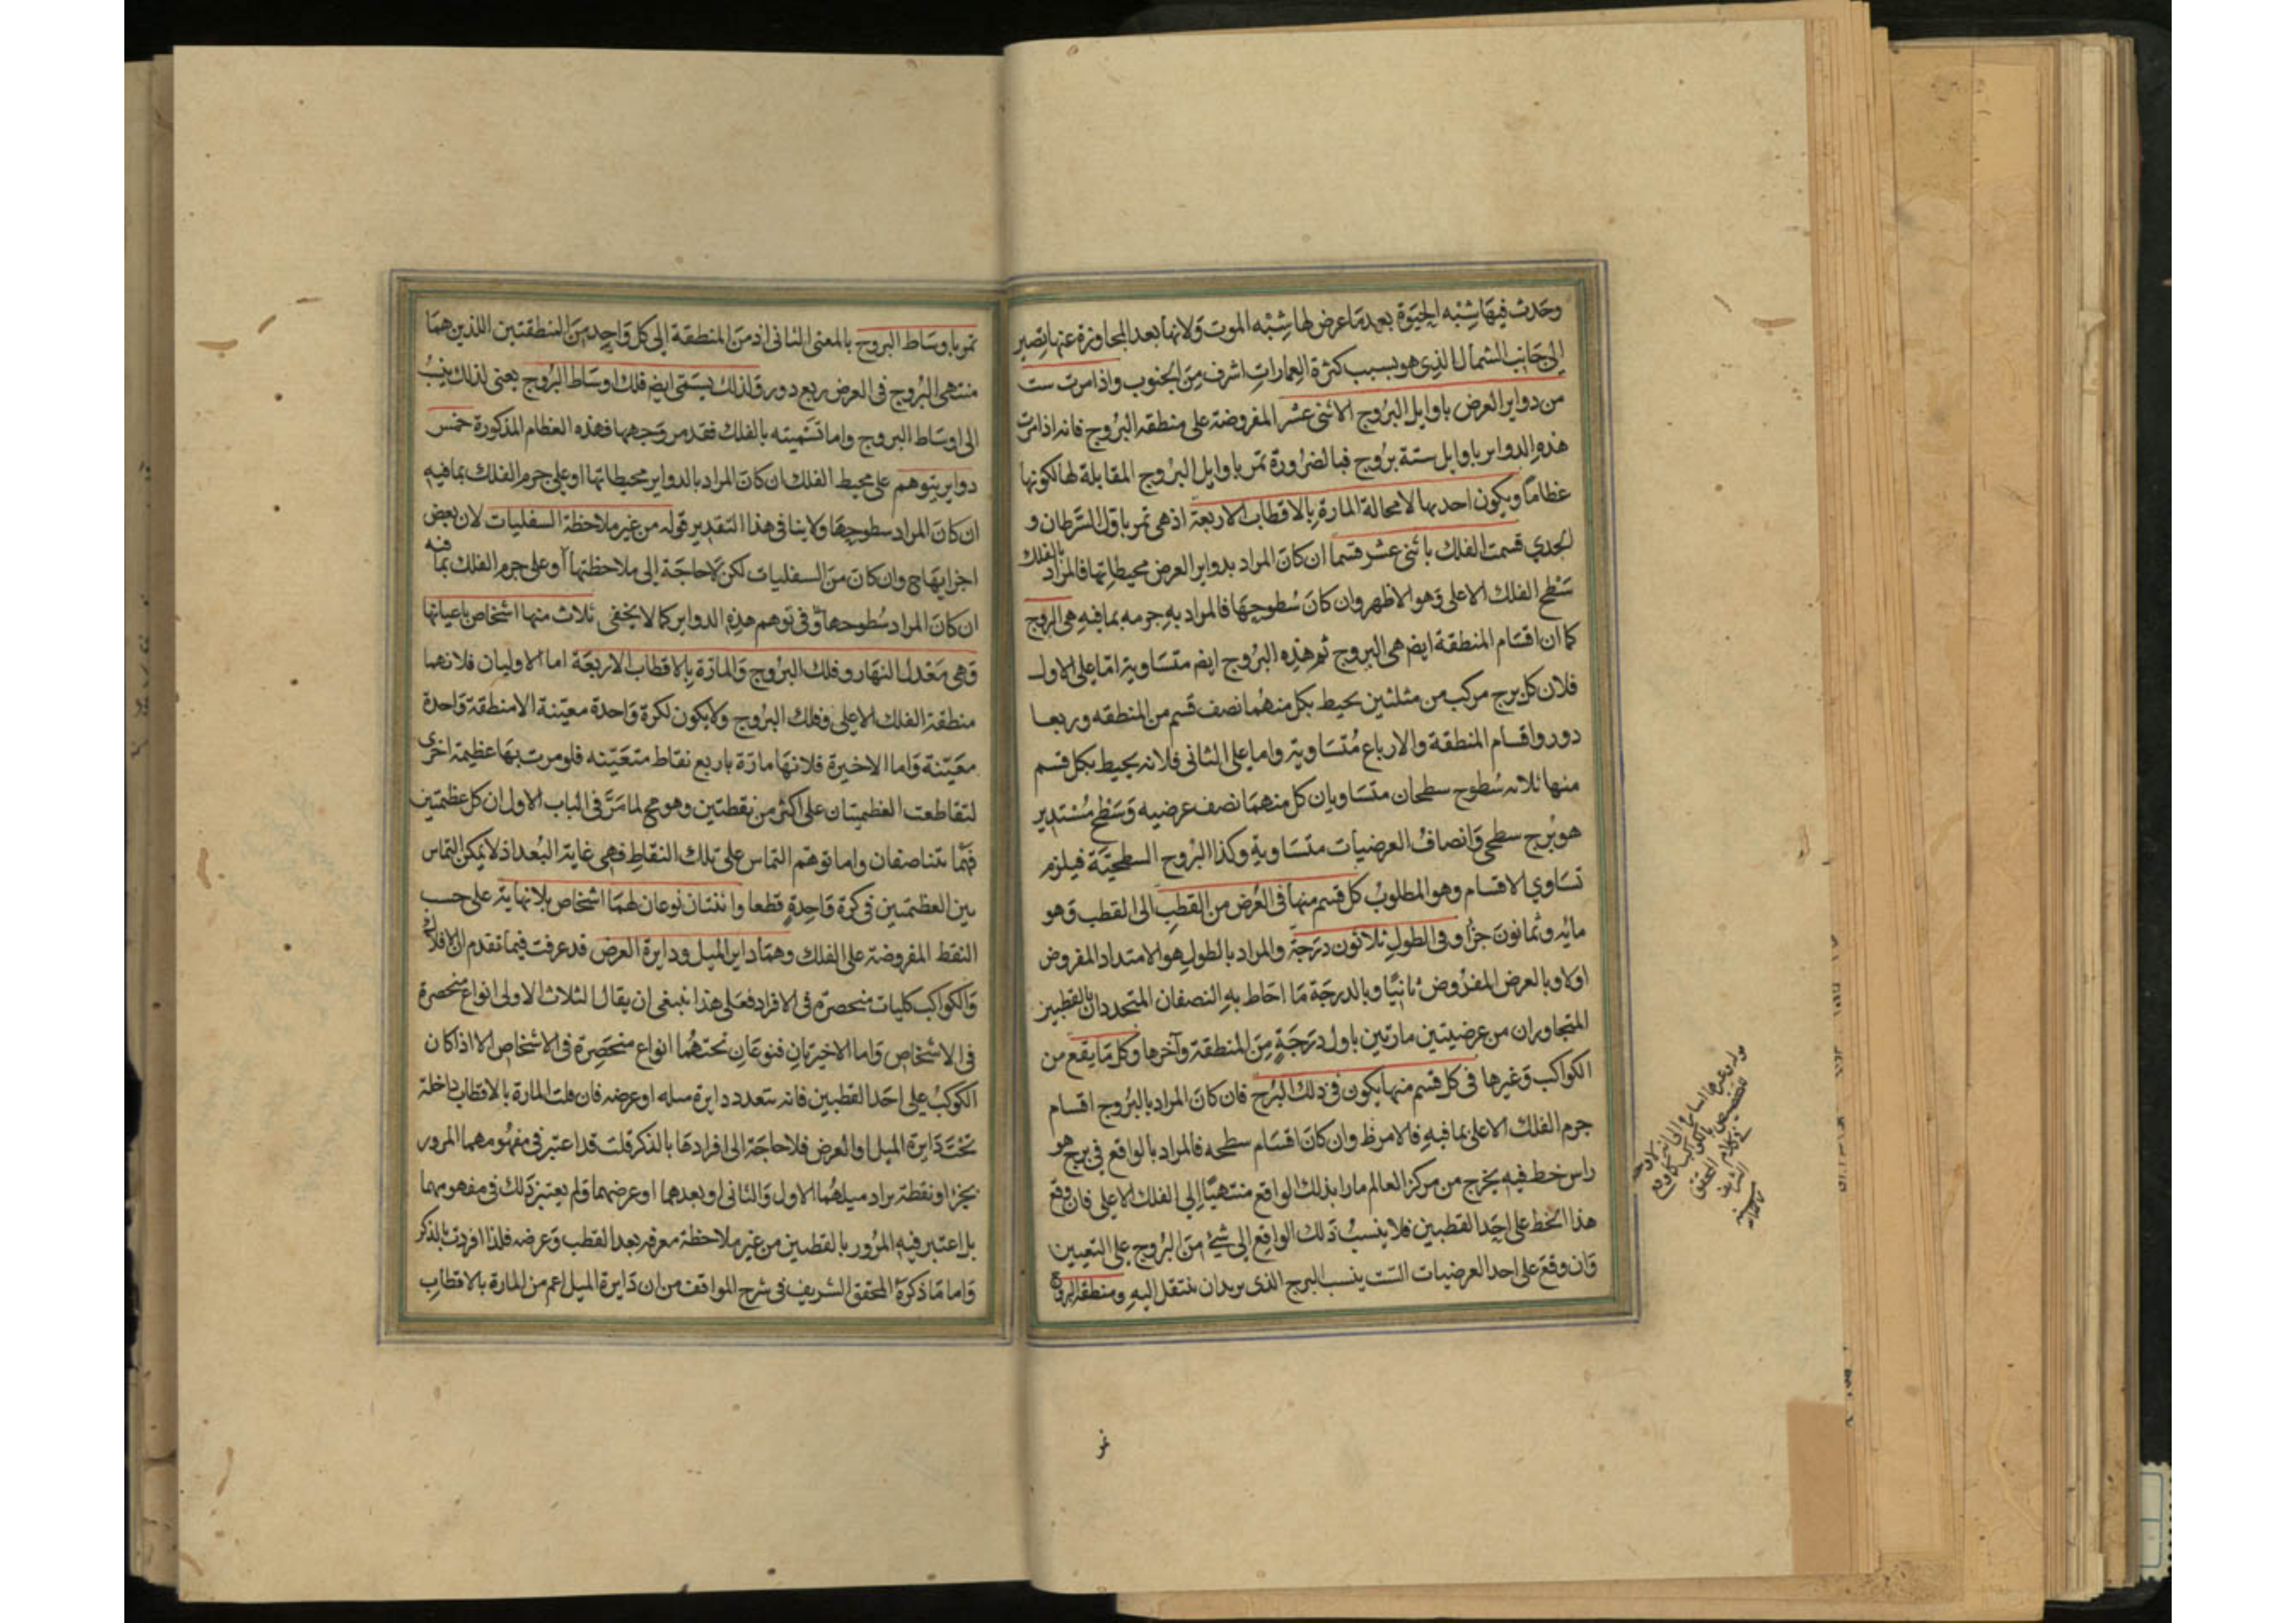 وحدث فيها شبه الحيوة بعد ما عرض لها شبه الموت ولانها بعد المجاوزة عنها تصير
الى جانب الشمال الذى هو بسبب كثرة العمارات اشرف من الجنوب واذا مرت ست
من دواير العرض باوايل البروج الاثنى عشر المفروضة على منطقة البروج فانه اذا مرت
هذه الدواير باوايل ستة بروج فبالضرورة تمر باوايل البروج المقابلة لها لكونها
عظاما ويكون احديها لامحالة المارة بالاقطاب الاربعة اذ هى تمر باول السرطان و
الجدي قسمت الفلك باثنى عشر قسما ان كان المراد بدواير العرض محيطاتها فالمراد بالفلك
سطح الفلك الاعلى وهو الاظهر وان كان سطوحها فالمراد به جرمه بما فيه هى البروج
كما ان اقسام المنطقة ايض هى البروج ثم هذه البروج ايض متساوية اما على الاول
فلان كل برج مركب من مثلثين يحيط بكل منهما نصف قسم من المنطقه وربعا
دور واقسام المنطقة والارباع متساوية واما على الثانى فلانه يحيط بكل قسم
منها ثلاثه سطوح سطحان متساويان كل منهما نصف عرضيه وسطح مستدير
هو برج سطحى وانصاف العرضيات متساوية وكذا البروج السطحية فيلزم
تساوي الاقسام وهو المطلوب كل قسم منها فى العرض من القطب الى القطب وهو
مائه وثمانون جزا وفى الطول ثلاثون درجة والمراد بالطول هو الامتداد المفروض
اولا وبالعرض المفروض ثانيا وبالدرجة ما احاط به النصفان المتحددان بالقطبين
المتجاوران من عرضيتين مارتين باول درجة من المنطقة وآخرها وكل ما يقع من
الكواكب وغيرها فى كل قسم منها يكون فى ذلك البرج فان كان المراد بالبروج اقسام
جرم الفلك الاعلى بما فيه فالامر ظ وان كان اقسام سطحه فالمراد بالواقع فى برج هو
راس خط فيه يخرج من مركز العالم مارا بذلك الواقع منتهيا الى الفلك الاعلى فان وقع
هذا الخط على احد القطبين فلا ينسب ذلك الواقع الى شئ من البروج على التعيين
وان وقع على احد العرضيات الست ينسب البرج الذى يريد ان ينتقل اليه ومنطقة البروج
تمر باوساط البروج بالمعنى الثانى اذ من المنطقة الى كل واحد من المنطقتين اللذين هما
منتهى البروج فى العرض ربع دور ولذلك يسمى ايض فلك اوساط البروج يعنى لذلك ينسب
الى اوساط البروج واما تسميته بالفلك فقد مر وجهها فهذه العظام المذكورة خمس
دواير يتوهم على محيط الفلك ان كان المراد بالدواير محيطاتها او على جرم الفلك بما فيه
ان كان المراد سطوحها ولا ينافى هذا التقدير قوله من غير ملاحظة السفليات لان بعض
اجزايها ح وان كان من السفليات لكن لا حاجة الى ملاحظتها او على جرم الفلك بما فيه
ان كان المراد سطوحها وفى توهم هذه الدواير كما لا يخفى ثلاث منها اشخاص باعيانها
وهى معدل النهار وفلك البروج والمارة بالاقطاب الاربعة اما الاوليان فلانهما
منطقة الفلك الاعلى وفلك البروج ولا يكون لكرة واحدة معينة الا منطقة واحدة
معينة واما الاخيرة فلانها مارة باربع نقاط متعينه فلو مرت بها عظيمة اخرى
لتقاطعت العظيمتان على اكثر من نقطتين وهو مح لما مر فى الباب الاول ان كل عظيمتين
فهما تتناصفان واما توهم التماس على تلك النقاط فهى غاية البعد اذ لا يمكن التماس
بين العظيمتين فى كرة واحدة قطعا واثنتان نوعان لهما اشخاص بلا نهاية على حسب
النقط المفروضة على الفلك وهما دايرة الميل ودايرة العرض قد عرفت فيما تقدم ان الافلاك
والكواكب كليات منحصرة فى الافراد فعلى هذا ينبغى ان يقال الثلاث الاولى انواع منحصرة
فى الاشخاص واما الاخيرتان فنوعان تحتهما انواع منحصرة فى الاشخاص الا اذا كان
الكوكب على احد القطبين فانه يتعدد دايرة ميله او عرضه فان قلت المارة بالاقطاب داخلة
تحت دايرة الميل او العرض فلا حاجة الى افرادها بالذكر قلت قد اعتبر فى مفهومهما المرور
بجزا ونقطة يراد ميلهما الاول والثانى او بعدهما او عرضهما ولم يعتبر ذلك فى مفهومها
بل اعتبر فيه المرور بالقطبين من غير ملاحظة معرفه بعد القطب وعرضه فلذا افردت بالذكر
واما ما ذكره المحقق الشريف فى شرح المواقف من ان دايرة الميل اعم من المارة بالاقطاب